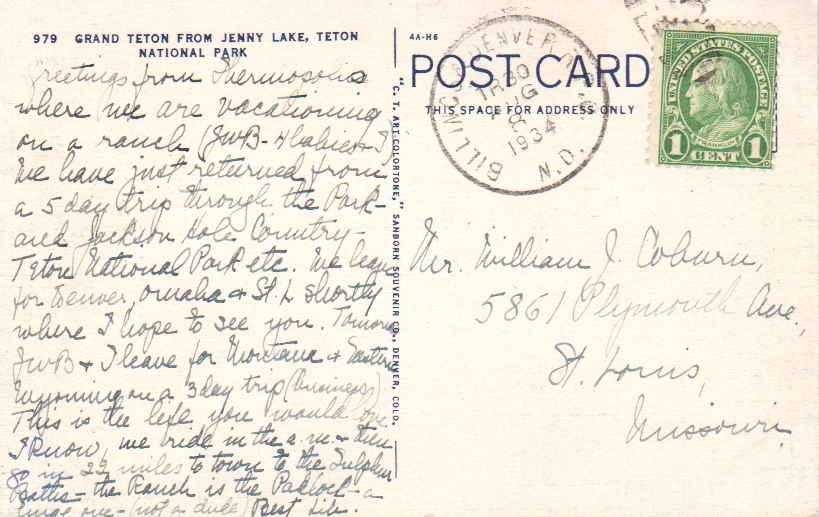 979 GRAND TETON FROM JENNY LAKE, TETON
NATIONAL PARK
Greetings from Thermopolis
where we are vacationing
on a ranch (JWB - 4 babies & I)
We have just returned from
a 5 day trip through the Park -
and Jackson Hole Country -
Teton National Park etc. We leave
for Denver, Omaha & St. L shortly
where I hope to see you. Tomorrow
JWB & I leave for Montana & Eastern
Wyoming on a 3 day trip (business)
This is the life you would love
I know, we ride in the a.m. & then
go in 22 miles to town to the Sulphur
Baths - the Ranch is the Padlock - a
huge one - (not a dude) Best
"C. T. ART-COLORTONE," SANBORN SOUVENIR CO., DENVER, COLO.
4A-H6
POST CARD
THIS SPACE FOR ADDRESS ONLY
BILLINGS & DENVER R.P.O.
TR 30
AUG
8
1934
N.D.
UNITED STATES POSTAGE
FRANKLIN
1 CENT 1
Mr. William J. Coburn,
5861 Plymouth Ave.,
St. Louis,
Missouri